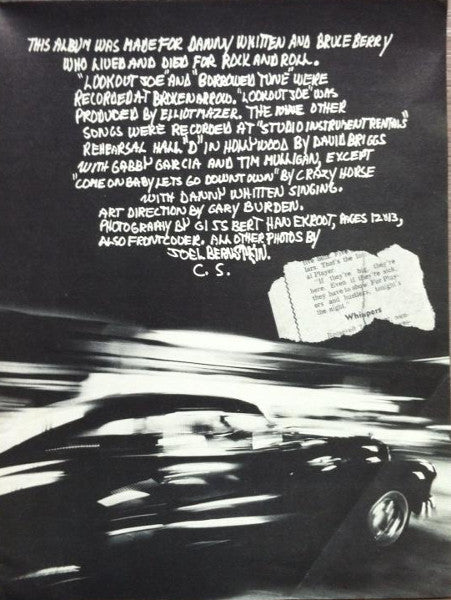 THIS ALBUM WAS MADE FOR DANNY WHITTEN AND BRUCE BERRY
WHO LIVED AND DIED FOR ROCK AND ROLL.
"LOOKOUT JOE" AND "BORROWED TUNE" WERE
RECORDED AT BROKEN ARROW. "LOOKOUT JOE" WAS
PRODUCED BY ELLIOT MAZER. THE NINE OTHER
SONGS WERE RECORDED AT "STUDIO INSTRUMENT RENTALS"
REHEARSAL HALL "D" IN HOLLYWOOD BY DAVID BRIGGS
WITH GABBY GARCIA AND TIM MULLIGAN, EXCEPT
"COME ON BABY LETS GO DOWNTOWN" BY CRAZY HORSE
WITH DANNY WHITTEN SINGING.
ART DIRECTION BY GARY BURDEN.
PHOTOGRAPHY BY GIJSBERT HANEKROOT, PAGES 12 & 13,
ALSO FRONT COVER. ALL OTHER PHOTOS BY
JOEL BERNSTEIN.
C. S.
lars. That's the
al Player
"If they're big, they're
here. Even if they're sick,
they have to show. For Play-
ers and hustlers, tonight's
the night."
Whispers